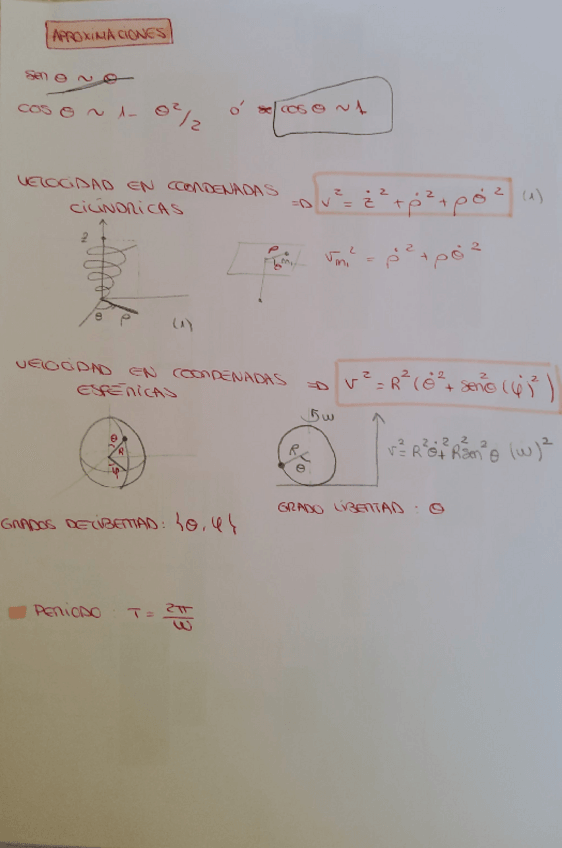 APROXIMACIONES
sen θ ~ θ
cos θ ~ 1 - θ²/2 ó cos θ ~ 1
VELOCIDAD EN COORDENADAS CILÍNDRICAS ⇒ v² = ż² + ρ̇² + ρ θ̇² (1)
z
θ ρ (1)
ρ θ m₁
v_m₁² = ρ̇² + ρ θ̇²
VELOCIDAD EN COORDENADAS ESFÉRICAS ⇒ v² = R² (θ̇² + sen²θ (φ̇)²)
θ R φ
ω R θ
v² = R² θ̇² + R² sen² θ (ω)²
GRADOS DE LIBERTAD: {θ, φ}
GRADO LIBERTAD: θ
PERIODO: T = 2π/ω